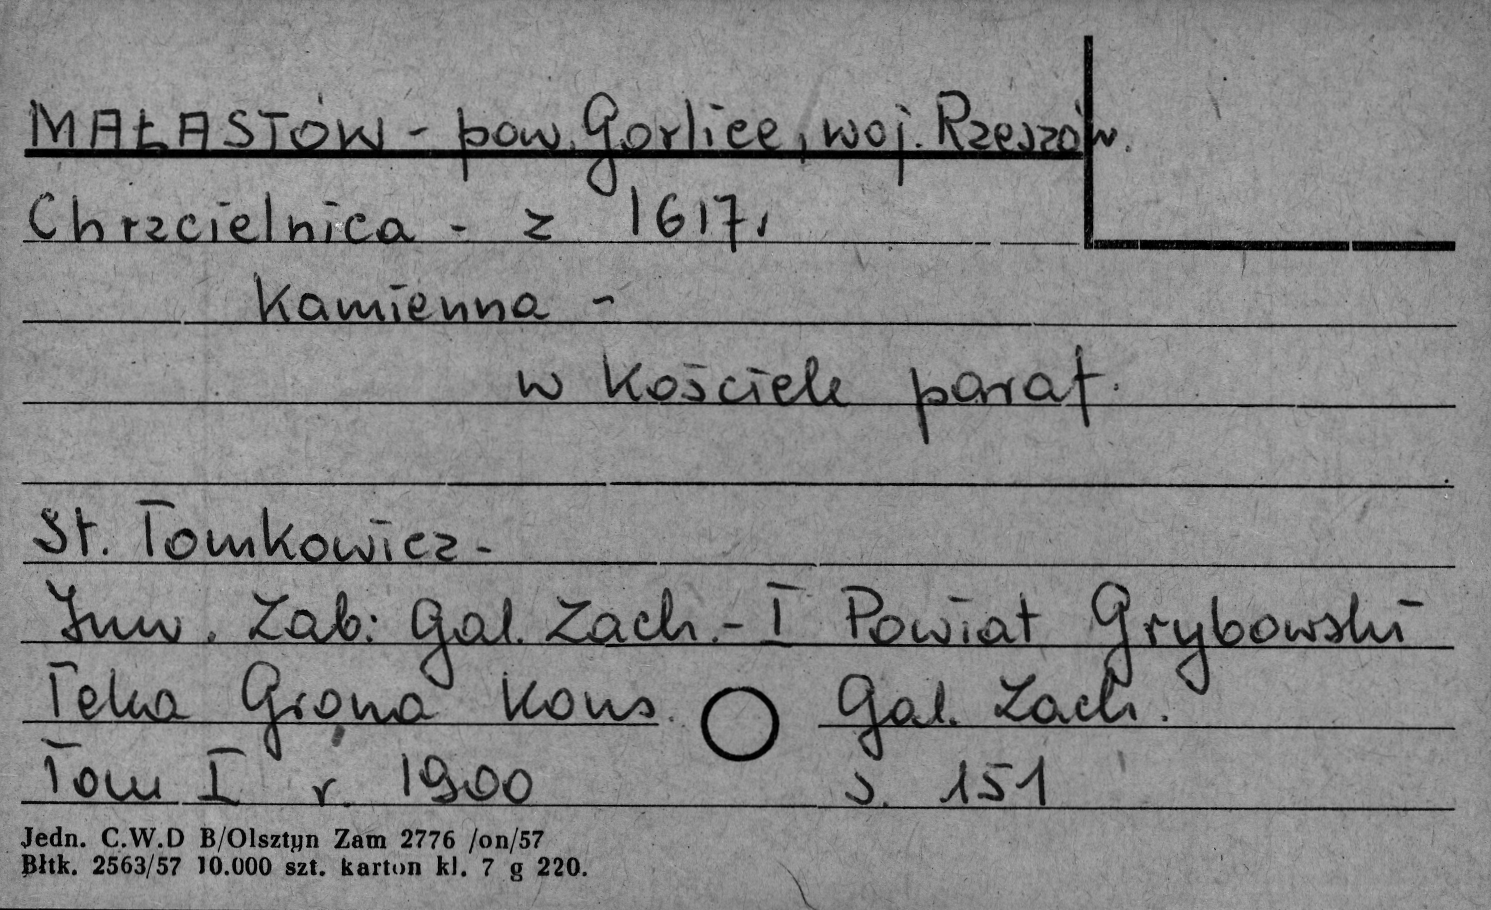 MAŁASTÓW - pow. Gorlice, woj. Rzeszów.
Chrzcielnica - z 1617r
Kamienna -
w Kościele paraf.
St. Tomkowicz -
Inw. Zab: Gal. Zach. - I Powiat Grybowski
Teka Grona Kons. Gal. Zach.
Tom I r. 1900 s. 151
Jedn. C.W.D B/Olsztyn Zam 2776 /on/57
Błtk. 2563/57 10.000 szt. karton kl. 7 g 220.